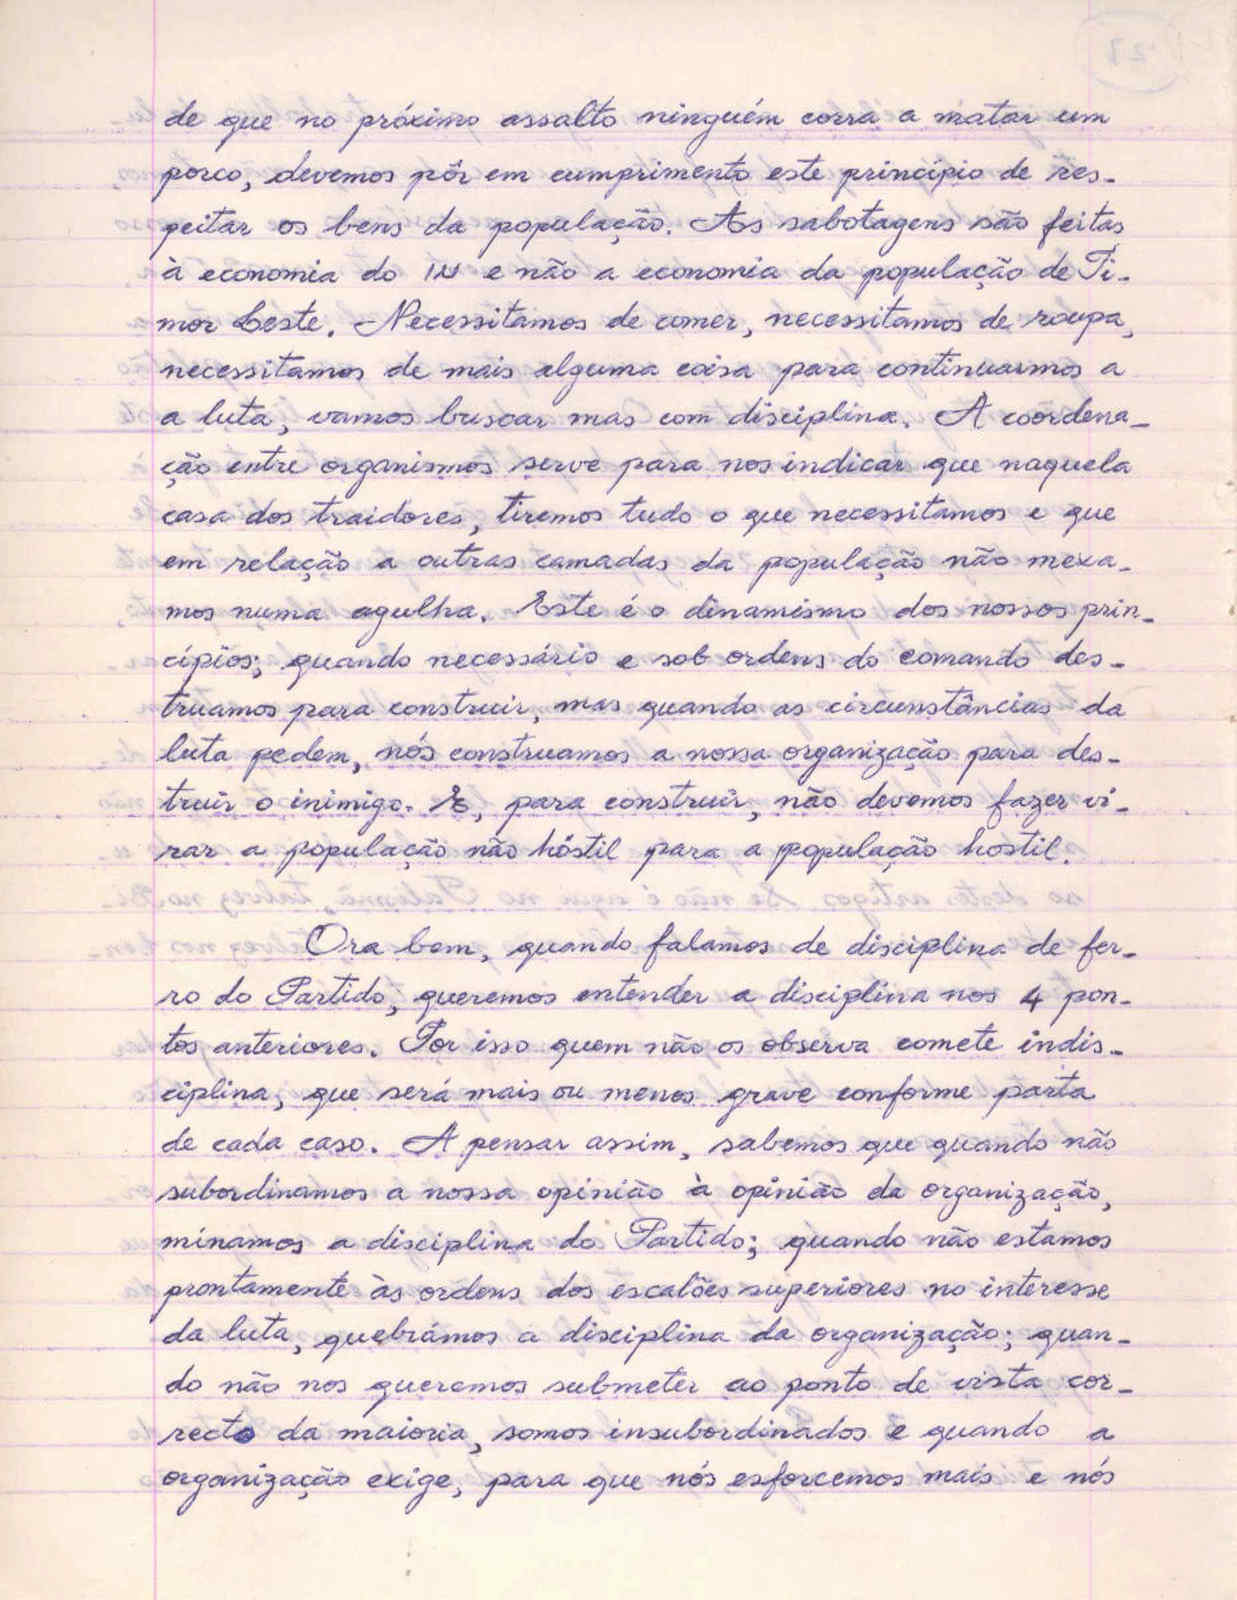 de que no próximo assalto ninguém corra a matar um
porco, devemos pôr em cumprimento este princípio de res-
peitar os bens da população. As sabotagens são feitas
à economia do IN e não a economia da população de Ti-
mor Leste. Necessitamos de comer, necessitamos de roupa,
necessitamos de mais alguma coisa para continuarmos a
a luta, vamos buscar mas com disciplina. A coordena-
ção entre organismos serve para nos indicar que naquela
casa dos traidores, tiremos tudo o que necessitamos e que
em relação a outras camadas da população não mexa-
mos numa agulha. Este é o dinamismo dos nossos prin-
cípios; quando necessário e sob ordens do comando des-
truamos para construir, mas quando as circunstâncias da
luta pedem, nós construamos a nossa organização para des-
truir o inimigo. E, para construir, não devemos fazer vi-
rar a população não hóstil para a população hostil.
Ora bem, quando falamos de disciplina de fer-
ro do Partido, queremos entender a disciplina nos 4 pon-
tos anteriores. Por isso quem não os observa comete indis-
ciplina, que será mais ou menos grave conforme parta
de cada caso. A pensar assim, sabemos que quando não
subordinamos a nossa opinião à opinião da organização,
minamos a disciplina do Partido; quando não estamos
prontamente às ordens dos escalões superiores no interesse
da luta, quebrámos a disciplina da organização; quan-
do não nos queremos submeter ao ponto de vista cor-
recto da maioria, somos insubordinados e quando a
organização exige, para que nós esforcemos mais e nós